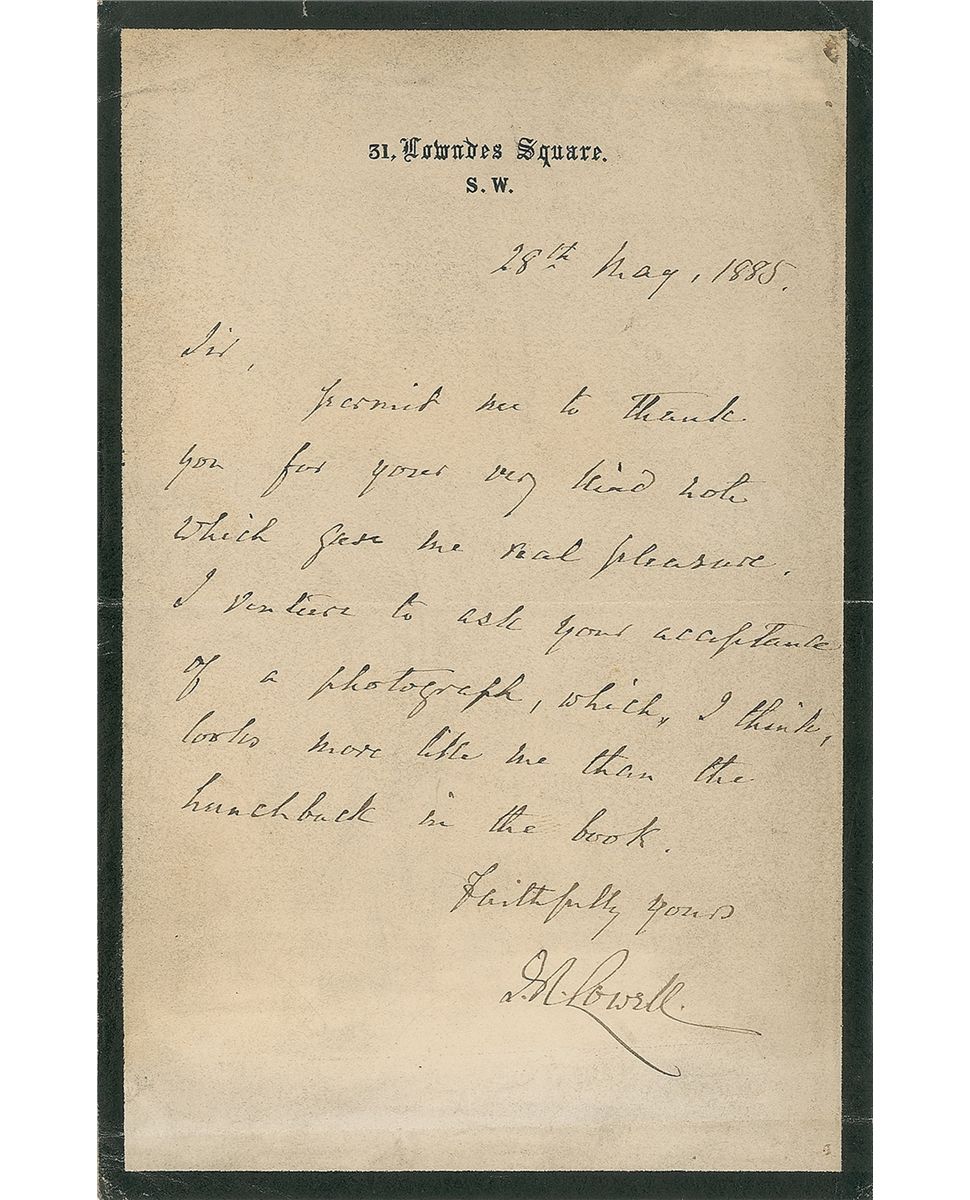 31, Lowndes Square.
S. W.
28th May, 1885.
Sir,
permit me to thank
you for your very kind note
which gave me real pleasure.
I venture to ask your acceptance
of a photograph, which, I think,
looks more like me than the
hunchback in the book.
Faithfully yours
J. R. Lowell.